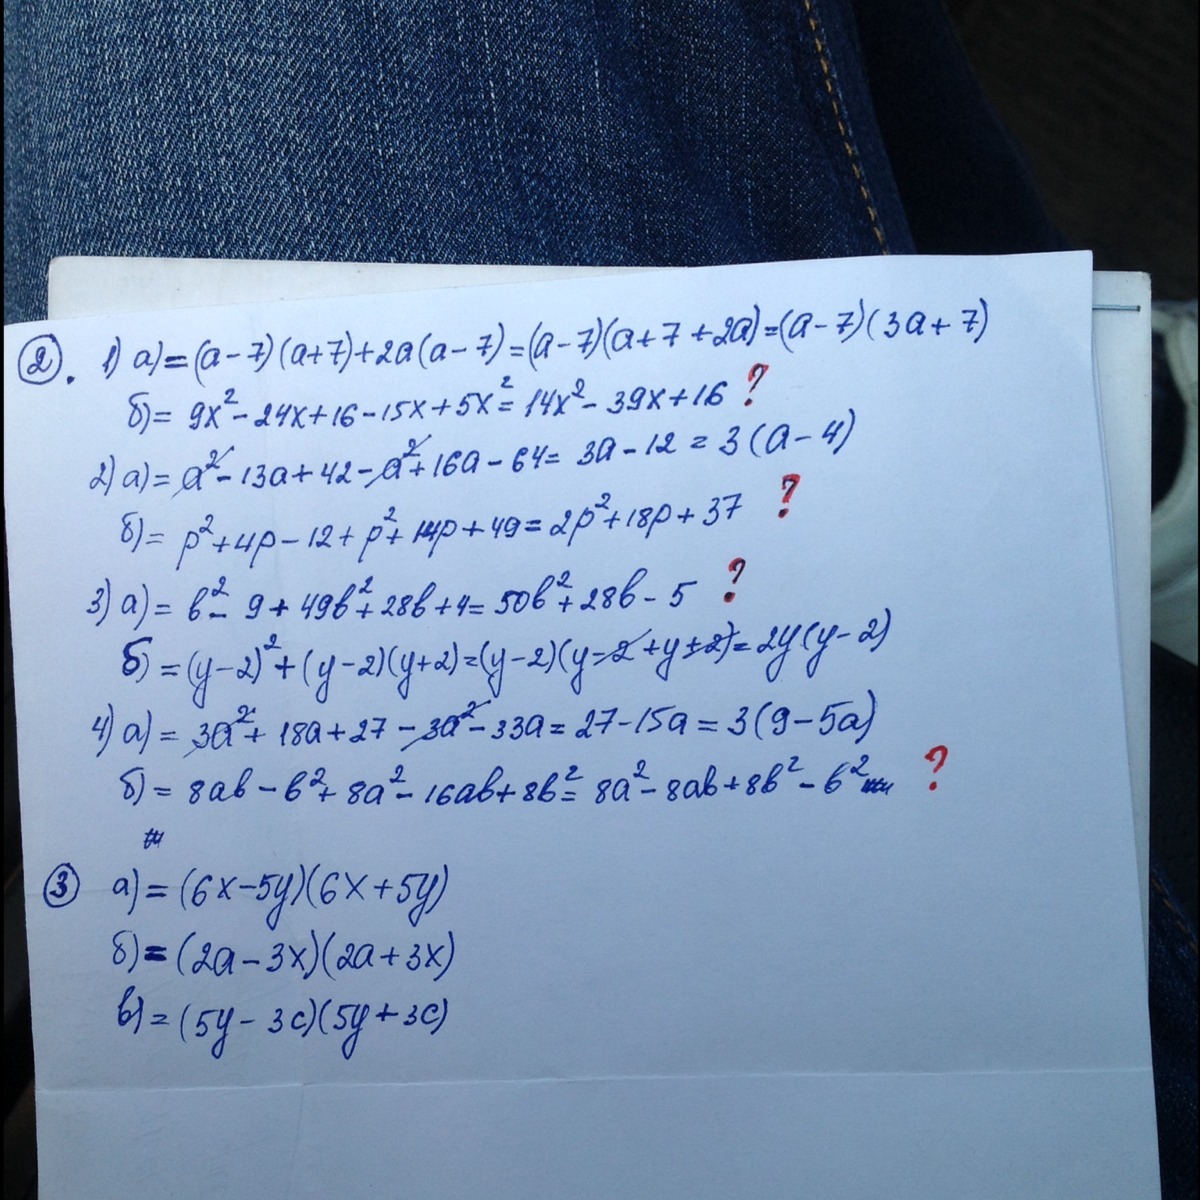 2. 1) а) = (a-7)(a+7)+2a(a-7)=(a-7)(a+7+2a)=(a-7)(3a+7)
б) = 9x²-24x+16-15x+5x²=14x²-39x+16 ?
2) а) = a²-13a+42-a²+16a-64= 3a-12 = 3(a-4)
б) = p²+4p-12+p²+14p+49=2p²+18p+37 ?
3) а) = b²-9+49b²+28b+4=50b²+28b-5 ?
б) =(y-2)²+(y-2)(y+2)=(y-2)(y-2+y+2)=2y(y-2)
4) а) = 3a²+18a+27-3a²-33a=27-15a=3(9-5a)
б) = 8ab-b²+8a²-16ab+8b²=8a²-8ab+8b²-b² ?
3 а) = (6x-5y)(6x+5y)
б) = (2a-3x)(2a+3x)
в) = (5y-3c)(5y+3c)